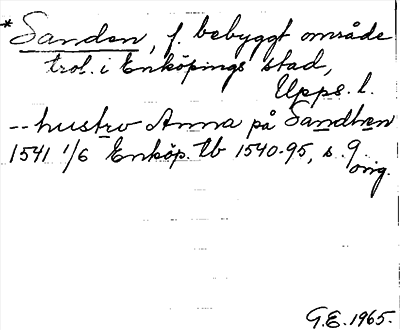 *Sanden, f. bebyggt område
trol. i Enköpings stad,
Upps. l.
-- hustrv Anna på Sandhen
1541 1/6 Enköp. tb 1540-95, s. 9
orig.
G.E. 1965.